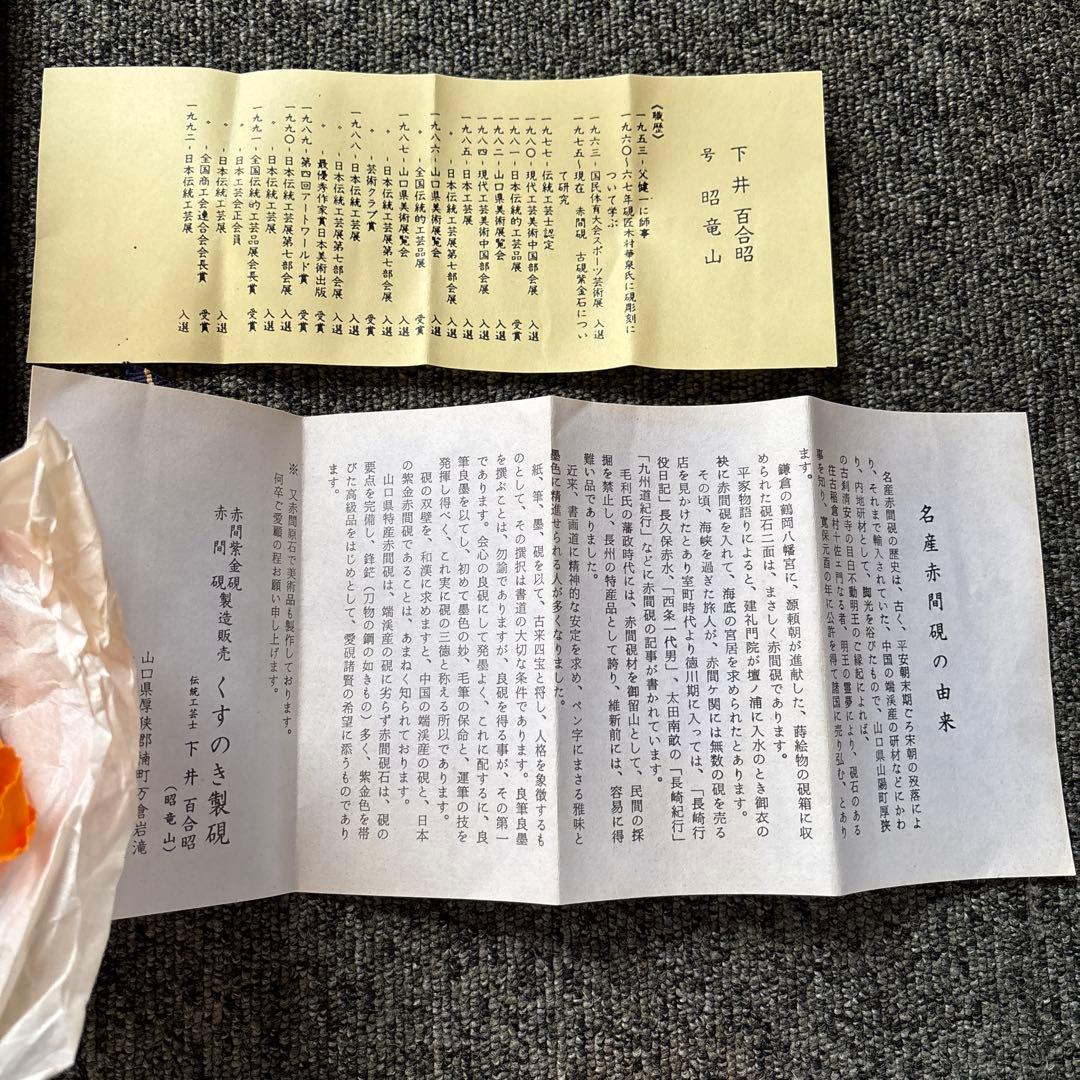 下井百合昭
号 昭竜山
《職歴》
一九五三-父健一に師事
一九六〇〜六七年硯匠木村華泉氏に硯彫刻に
ついて学ぶ
一九六三-国民体育大会スポーツ芸術展 入選
一九七五〜現在 赤間硯 古硯紫金石につい
て研究
一九七七-伝統工芸士認定
一九八〇-現代工芸美術中国部会展 入選
一九八一-日本伝統的工芸品展 受賞
一九八二-山口県美術展覧会 入選
一九八四-現代工芸美術中国部会展 入選
一九八五-日本工芸展 入選
〃 -日本伝統工芸展第七部会展 入選
一九八六-山口県美術展覧会 入選
〃 -全国伝統的工芸品展 受賞
一九八七-山口県美術展覧会 入選
〃 -日本伝統工芸展第七部会展 入選
〃 芸術クラブ賞 受賞
一九八八-日本伝統工芸展 入選
〃 -日本伝統工芸展第七部会展 入選
〃 -最優秀作家賞日本美術出版 受賞
一九八九-第四回アートワールド賞 受賞
一九九〇-日本伝統工芸展第七部会展 入選
〃 -日本伝統工芸展 入選
一九九一-全国伝統的工芸品展会長賞 受賞
〃 -日本工芸会正会員
〃 -日本伝統工芸展 入選
〃 -全国商工会連合会会長賞 受賞
一九九二-日本伝統工芸展 入選
名産赤間硯の由来
名産赤間硯の歴史は、古く、平安朝末期ころ宋朝の残落によ
り、それまで輸入されていた、中国の端渓産の研材などにかわ
り、内地研材として、脚光を浴びたもので、山口県山陽町厚狭
の古刹清安寺の目白不動明王のご縁起によれば、硯石のある
往古稲倉村十佐ェ門なる者、明王の霊夢により、硯石のある
事を知り、寛保元酉の年に公許を得て諸国に売り弘む、とあり
ます。
鎌倉の鶴岡八幡宮に、源頼朝が進献した、蒔絵物の硯箱に収
められた硯石二面は、まさしく赤間硯であります。
平家物語りによると、建礼門院が壇ノ浦に入水のとき御衣の
袂に赤間硯を入れて、海底の宮居を求められたとあります。
その頃、海峡を過ぎた旅人が、赤間ヶ関には無数の硯を売る
店を見かけたとあり室町時代より徳川期に入っては、「長崎行
役日記」長久保赤水、「西条一代男」、太田南畝の「長崎紀行」
「九州道紀行」などに赤間硯の記事が書かれています。
毛利氏の藩政時代には、赤間硯材を御留山として、民間の採
掘を禁止し、長州の特産品として誇り、維新前には、容易に得
難い品でありました。
近来、書画道に精神的な安定を求め、ペン字にまさる雅味と
墨色に精進せられる人が多くなりました。
紙、筆、墨、硯を以て、古来四宝と将し、人格を象徴するも
のとして、その撰択は書道の大切な条件であります。良筆良墨
を撰ぶことは、勿論でありますが、良硯を得る事が、その第一
であります。会心の良硯にして発墨よく、これに配するに、良
筆良墨を以てし、初めて墨色の妙、毛筆の保命と、運筆の技を
発揮し得べく、これ実に硯の三徳と称える所以であります。
硯の双壁を、和漢に求めますと、中国の端渓産の硯と、日本
の紫金赤間硯であることは、あまねく知られております。
山口県特産赤間硯は、端渓産の硯に劣らず赤間硯石は、硯の
要点を完備し、鋒鋩(刀物の鋼の如きもの)多く、紫金色を帯
びた高級品をはじめとして、愛硯諸賢の希望に添うものであり
ます。
※ 又赤間原石で美術品も製作しております。
何卒ご愛顧の程お願い申し上げます。
赤間紫金硯
赤間硯 製造販売 くすのき製硯
伝統工芸士 下井百合昭
(昭竜山)
山口県厚狭郡楠町万倉岩滝